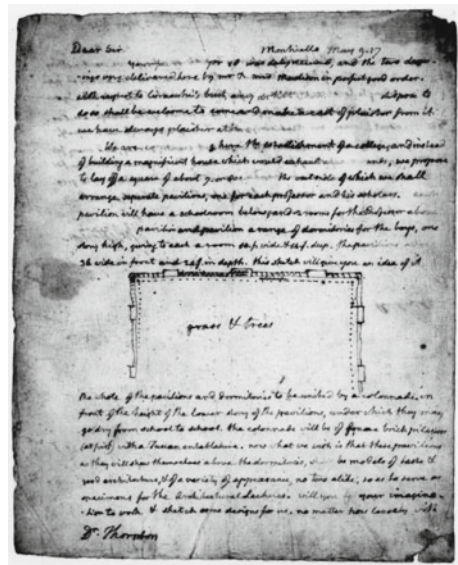 Dear Sir Monticello May 9. 17
of was duly received, and the two draw-
ings were delivered here by mr & mrs Madison in perfect good order.
with respect to Ceracchi's bust, any artist dispose to
do so shall be welcome to come and make a cast of plaister from it.
we have always plaister at
We are here the establishment of a college, and instead
of building a magnificent house which would exhaust we propose
to lay off a square of about 7. or the outside of which we shall
arrange separate pavilions, one for each professor and his scholars.
pavilion will have a schoolroom below, and 2 rooms for the Professor above
pavilion and pavilion a range of dormitories for the boys, one
story high, giving to each a room wide & deep. the pavilions
36 wide in front and 24 f. in depth. this sketch will give you an idea of it
grass & trees
the whole of the pavilions and dormitories to be united by a colonnade in
front of the height of the lower story of the pavilions, under which they may
go dry from school to school. the colonnade will be of square brick pilasters
(at first) with a Tuscan entablature. now what we wish is that these pavilions
as they will shew themselves above the dormitories, be models of taste &
good architecture, & of a variety of appearance, no two alike, so as to serve as
specimens for the Architectural lectures. will you your imagina-
-tion to work & sketch some designs for us, no matter how loosely with
Dr. Thornton